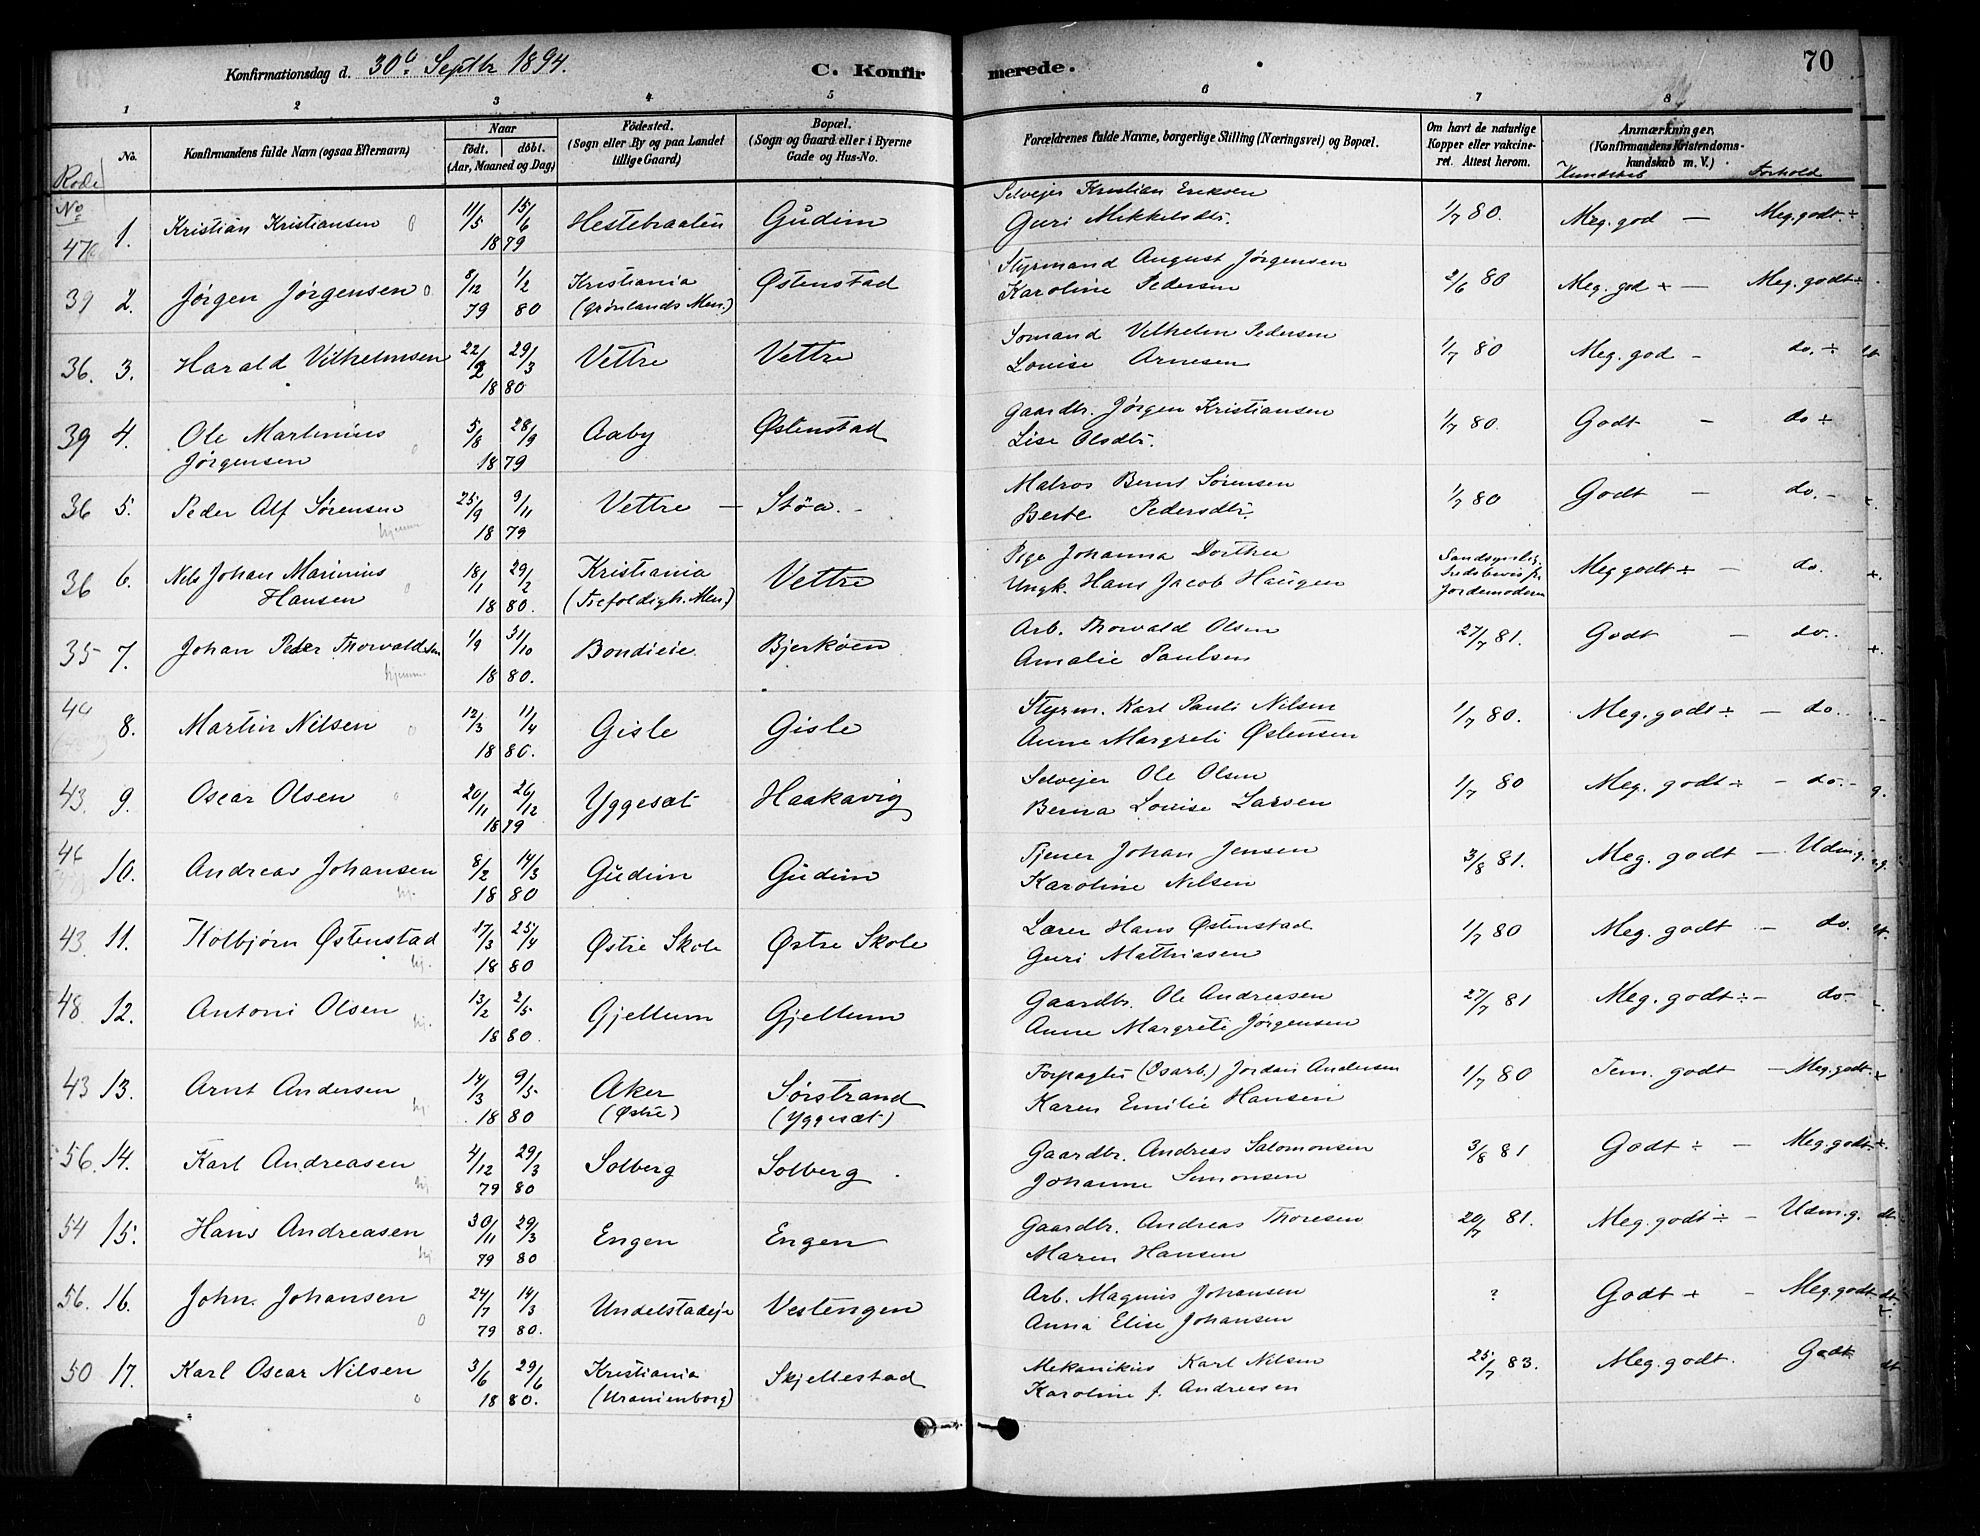 Konfirmationsdag d. 30d. Septbr 1894. C. Konfirmerede. 70
1 2 3 4 5 6 7 8
No. Konfirmandens fulde Navn (ogsaa Efternavn) Naar födt. döbt. (Aar, Maaned og Dag) Födested. (Sogn eller By og paa Landet tillige Gaard) Bopæl. (Sogn og Gaard eller i Byerne Gade og Hus-No. Forældrenes fulde Navne, borgerlige Stilling (Næringsvei) og Bopæl. Om havt de naturlige Kopper eller vakcineret. Attest herom. Anmærkninger. (Konfirmandens Kristendomskundskab m. V.)
Rode No Kundskab Forhold
47 1. Kristian Kristiansen 11/5 15/6 1879 Hestebraaten Gudim Selvejer Kristian Eriksen
Guri Mikkelsdtr. 1/7 80. Meg. god — Meg. godt. ÷
39 2. Jørgen Jørgensen 8/12 79 1/2 80 Kristiania (Grønlands Men.) Østenstad Styrmand August Jørgensen
Karoline Pedersen 2/6 80 Meg. god + — Meg. godt ÷
36. 3. Harald Vilhelmsen 22/2 29/3 1880 Vettre Vettre Somand Vilhelm Pedersen
Louise Arnesen 1/7 80 Meg. god - do. ÷
39 4. Ole Martinius
Jørgensen 5/8 28/9 1879 Aaby Østenstad Gaardbr. Jørgen Kristiansen
Lise Olsdtr. 1/7 80. Godt - do ÷
36 5. Peder Alf Sørensen hjemme 25/9 9/11 1879 Vettre — Støa. - Matros Bernt Sørensen
Berte Pedersdtr. 1/7 80 Godt — do. -
36 6. Nils Johan Marinius
Hansen 18/1 29/2 1880. Kristiania (Trefoldigh. Men.) Vettre Pige Johanna Dorthea
Ungk. Hans Jacob Haugen Jordemoderen Meg godt ÷ — do.
35 7. Johan Peder Thorvaldsen hjemme 1/9 31/10 1880. Bondieie Bjerkøen Arb. Thorvald Olsen
Amalie Paulsen 27/7 81. Godt — do..
8. Martin Nilsen 12/3 11/4 1880. Gisle Gisle Styrm. Karl Pauli Nilsen
Anne Margrete Østensen 1/7 80. Meg. godt ÷ — do..
43. 9. Oscar Olsen 20/11 26/12 1879 Yggesæt Haakavig Selvejer Ole Olsen
Berna Louise Larsen 1/7 80 Meg. godt ÷ - do. -
46 10. Andreas Johansen hj. 8/2 14/3 1880 Gudim Gudim Tjener Johan Jensen
Karoline Nilsen 3/8 81. Meg. godt — Udm.g.
43. 11. Kolbjørn Østenstad hj. 17/3 25/4 1880 Østre Skole Østre Skole Lærer Hans Østenstad
Guri Mathiasen 1/7 80 Meg. godt - do.
48. 12. Antoni Olsen hj. 13/2 2/5 1880. Gjellum Gjellum Gaardbr. Ole Andreasen
Anne Margrete Jørgensen 27/7 81 Meg. godt ÷ - do -
43 13. Arnt Andersen hj. 14/3 9/5 1880 Aker (Østre) Sørstrand (Yggesæt) Forpagter (Isarb.) Jordan Andersen
Karen Emilie Hansen 1/7 80 Tem. godt - Meg. godt
56. 14. Karl Andreasen hj. 4/12 79 29/3 80 Solberg Solberg Gaardbr. Andreas Salomonsen
Johanne Simonsen 3/8 81 Godt ÷ - Meg. godt
54 15. Hans Andreasen hj 30/11 79 29/3 80 Engen Engen Gaardbr. Andreas Thoresen
Maren Hansen 20/7 81. Meg. godt ÷ - Udm.g.
56. 16. John Johansen 24/7 79 14/3 80. Undelstadeje Vestengen Arb. Magnus Johansen
Anna Elise Johansen ? Godt + - Meg. godt
50 17. Karl Oscar Nilsen 3/6 29/6 1880. Kristiania (Uranienborg) Skjellestad Mekanikus Karl Nilsen
Karoline f. Andreasen 25/7 83. Meg. godt. Godt